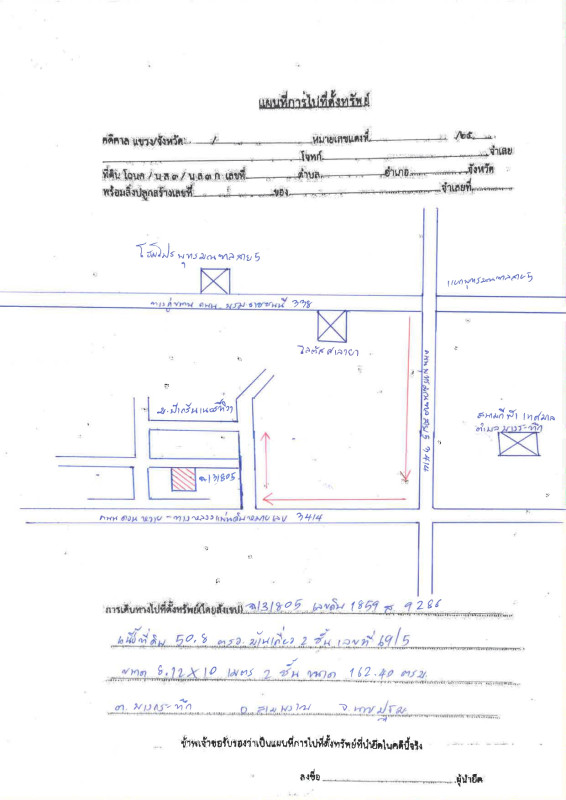 แผนที่การไปที่ตั้งทรัพย์
คดีศาล แขวง/จังหวัด / หมายเลขแดงที่ /๒๕
โจทก์ จำเลย
ที่ดิน โฉนด / น.ส.๓ / น.ส.๓ ก เลขที่ ตำบล อำเภอ จังหวัด
พร้อมสิ่งปลูกสร้างเลขที่ ของ จำเลยที่
พุทธมณฑลสาย 5
แยกพุทธมณฑลสาย 5
ทางคู่ขนาน ถนน บรมราชชนนี 338
โลตัส ศาลายา
ถนน พุทธมณฑลสาย 5
สถานีไฟฟ้า เทศบาล
ตำบล บางกระทึก
ฉ.131805
3414
การเดินทางไปที่ตั้งทรัพย์(โดยสังเขป) ฉ.131805 เลขดิน 1859 ส. 9286
เนื้อที่ดิน 50.8 ตรว. บ้านเดี่ยว 2 ชั้น เลขที่ 69/5
ขนาด 8.12x10 เมตร 2 ชั้น ขนาด 162.40 ตรม.
ต. บางกระทึก อ. สามพราน จ. นครปฐม
ข้าพเจ้าขอรับรองว่าเป็นแผนที่การไปที่ตั้งทรัพย์ที่นำยึดในคดีนี้จริง
ลงชื่อ ผู้นำยึด